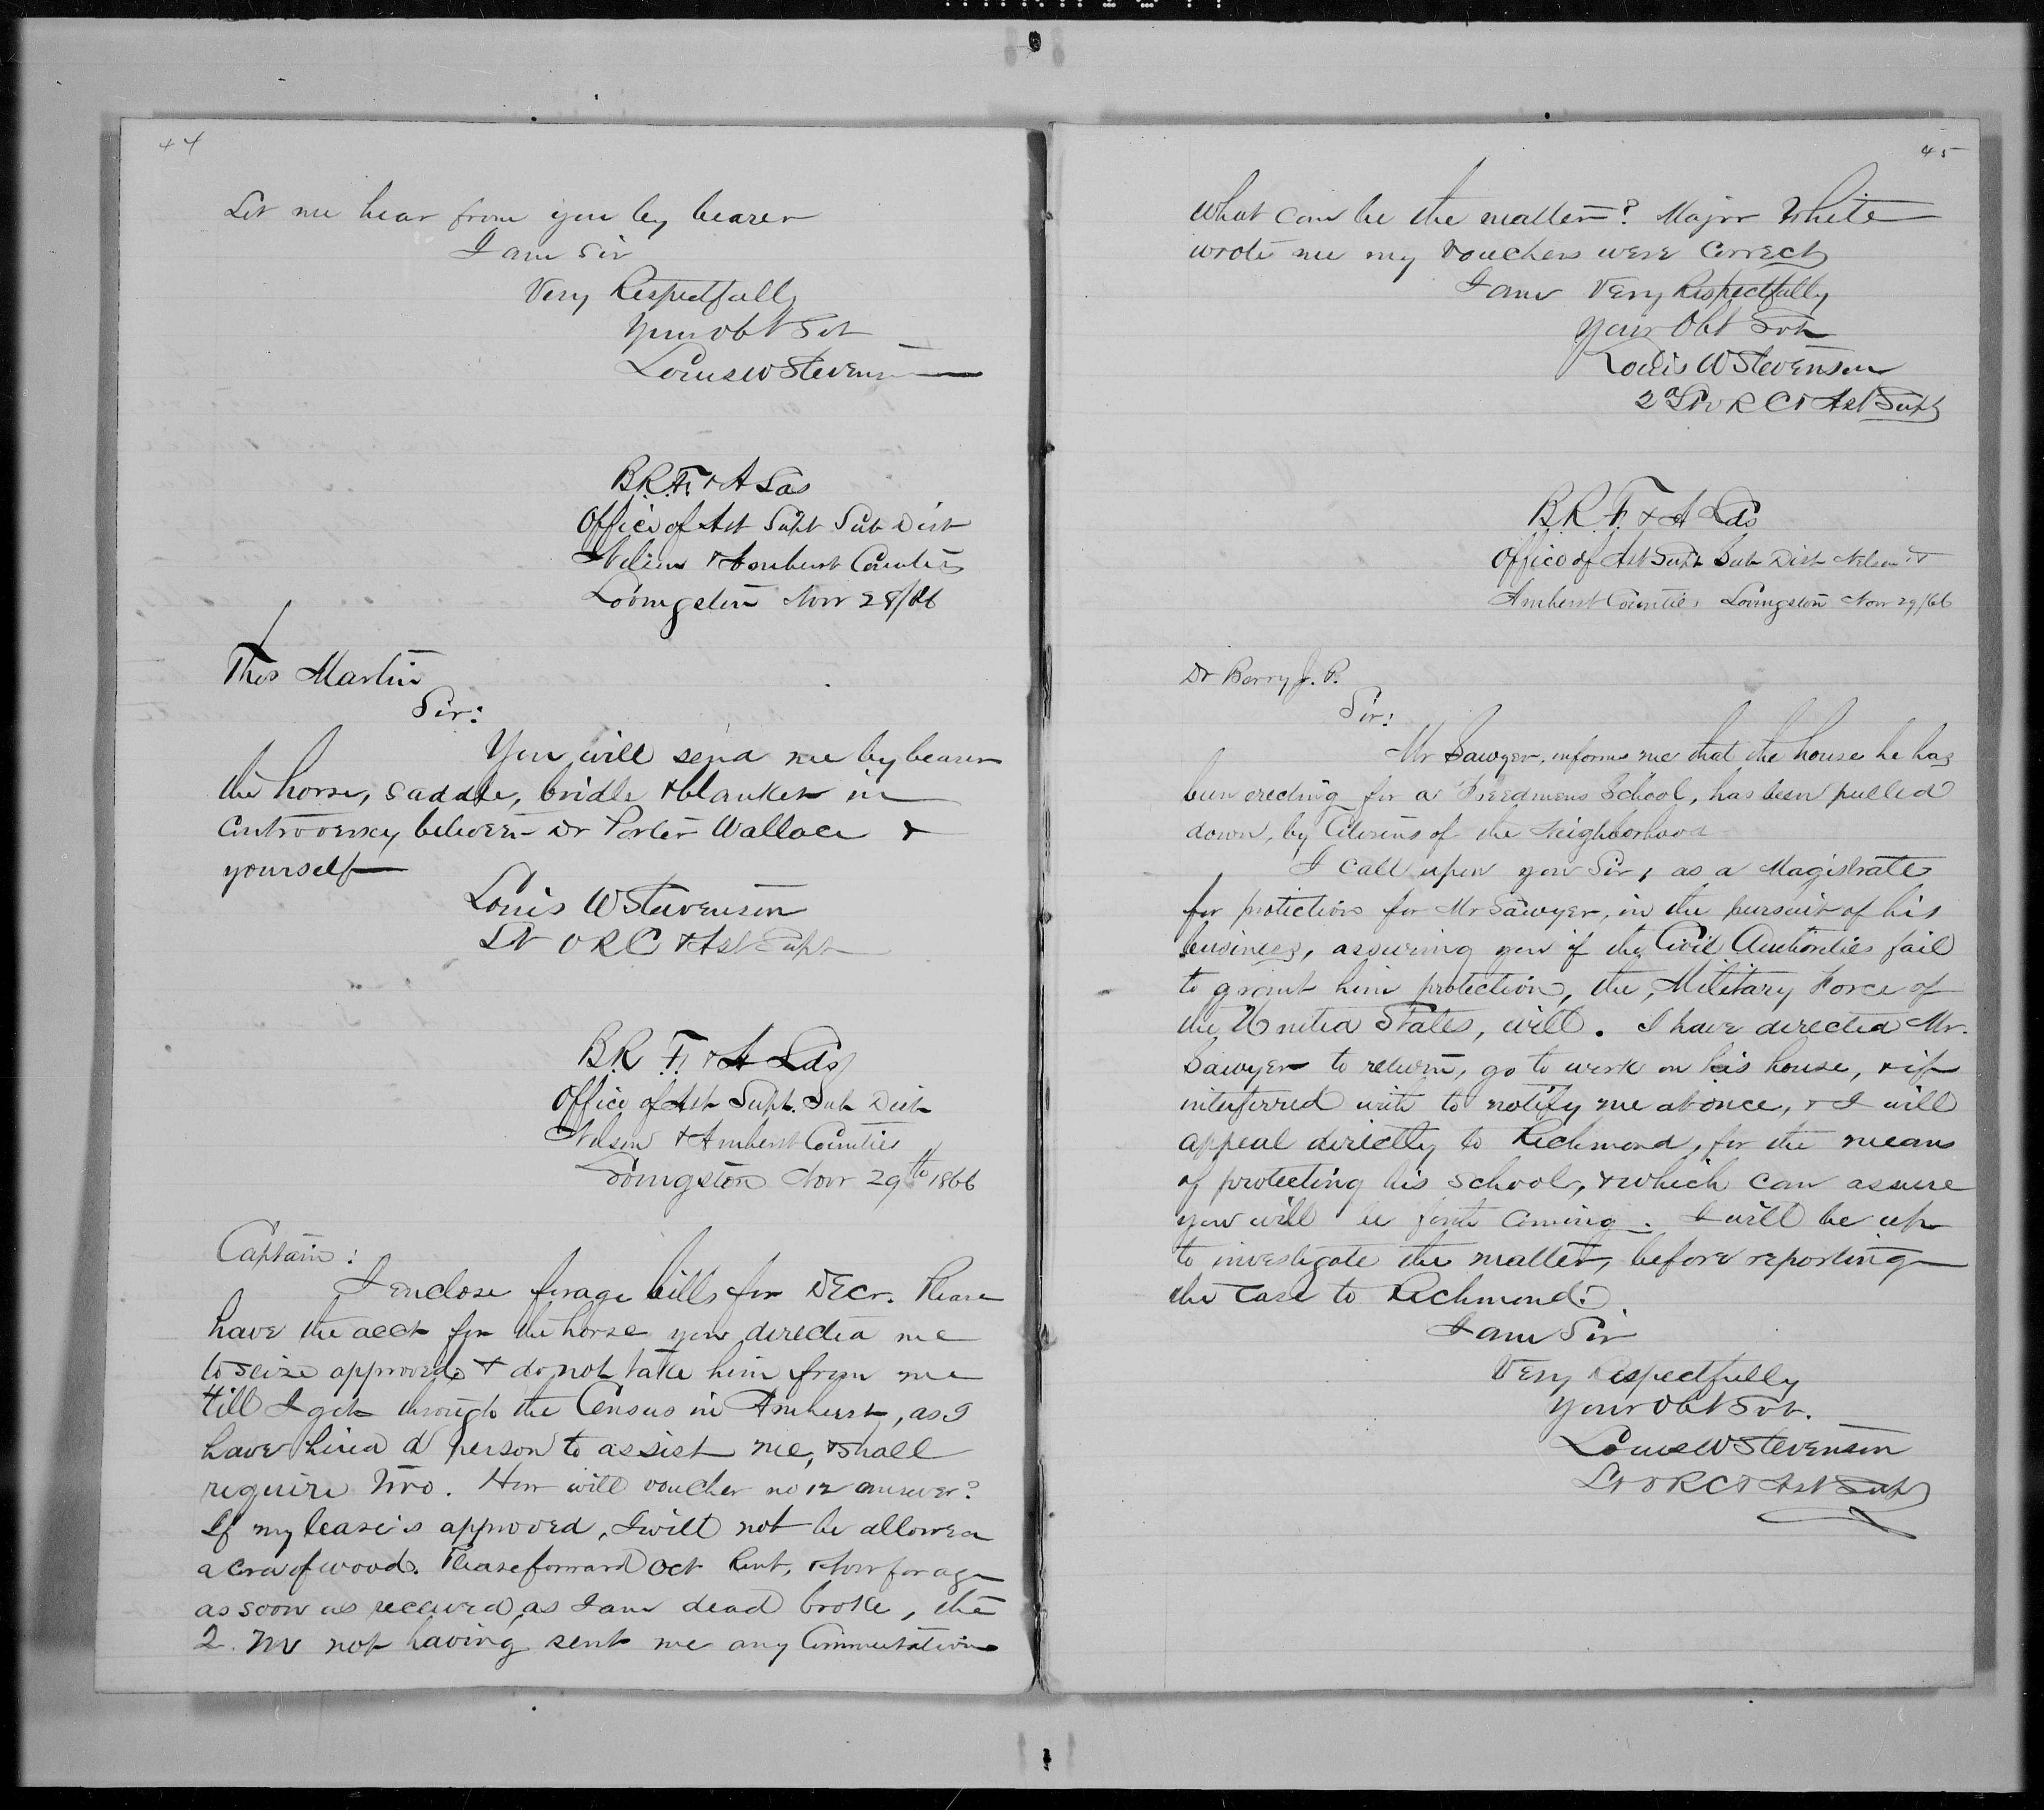 44
Let me hear from you by bearer
I am Sir
Very Respectfully
Your Obt Svt
Louis W Stevenson
B.R.F. & A Lds
Office of Ast Supt Sub Dist
Nelson & Amherst Counties
Lovingston Nov 28/66
Thos Martin
Sir:
You will send me by bearer
the horse, saddle, bridle & blanket in
controversy between Dr Porter Wallace &
yourself
Louis W Stevenson
Lt VRC & Ast Supt
B.R. F. & A Lds
Office of Ast Supt. Sub Dist
Nelson & Amherst Counties
Lovingston Nov 29th 1866
Captain:
I enclose forage bills for Decr. Please
have the acct for the horse you directed me
to seize approved & do not take him from me
till I get through the Census in Amherst, as I
have hired a person to assist me, & shall
require two. How will voucher no 12 answer?
If my lease is approved, I will not be allowed
a cord of wood. Please forward Oct Rent, & Nov forage
as soon as received, as I am dead broke, the
2. M not having sent me any Commutation
45
What can be the matter? Major White
wrote me my vouchers were Correct
I am Very Respectfully
Your Obt Svt
Louis W Stevenson
2d Lt V R C & Ast Supt
B.R. F. & A Lds
Office of Ast Supt Sub Dist Nelson &
Amherst Counties Lovingston Nov 29/66
Dr Berry J. P.
Sir:
Mr Sawyer, informs me that the house he has
been erecting for a Freedmens School, has been pulled
down, by Citizens of the Neighborhood
I call upon you Sir, as a Magistrate
for protection for Mr Sawyer, in the pursuit of his
business, assuring you if the Civil Authorities fail
to grant him protection, the, Military Force of
the United States, will. I have directed Mr.
Sawyer to return, go to work on his house, & if
interferred with to notify me at once, & I will
appeal directly to Richmond, for the means
of protecting his school, & which can assure
you will be forth coming. I will be up
to investigate the matter, before reporting
the Case to Richmond.
I am Sir
Very Respectfully
Your Obt Svt.
Louis W Stevenson
Lt V R C & Ast Supt